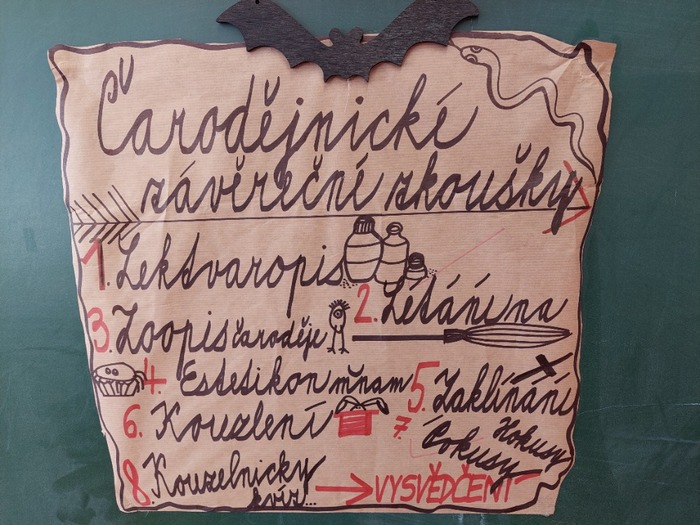 Čarodějnické
závěrečné zkoušky
1. Lektvaropis
2. Létání na
3. Zoopis čaroděje
4. Estetikon mňam
5. Zaklínání
6. Kouzlení
7. Hokusy
Pokusy
8. Kouzelnicky
kvíz...
VYSVĚDČENÍ